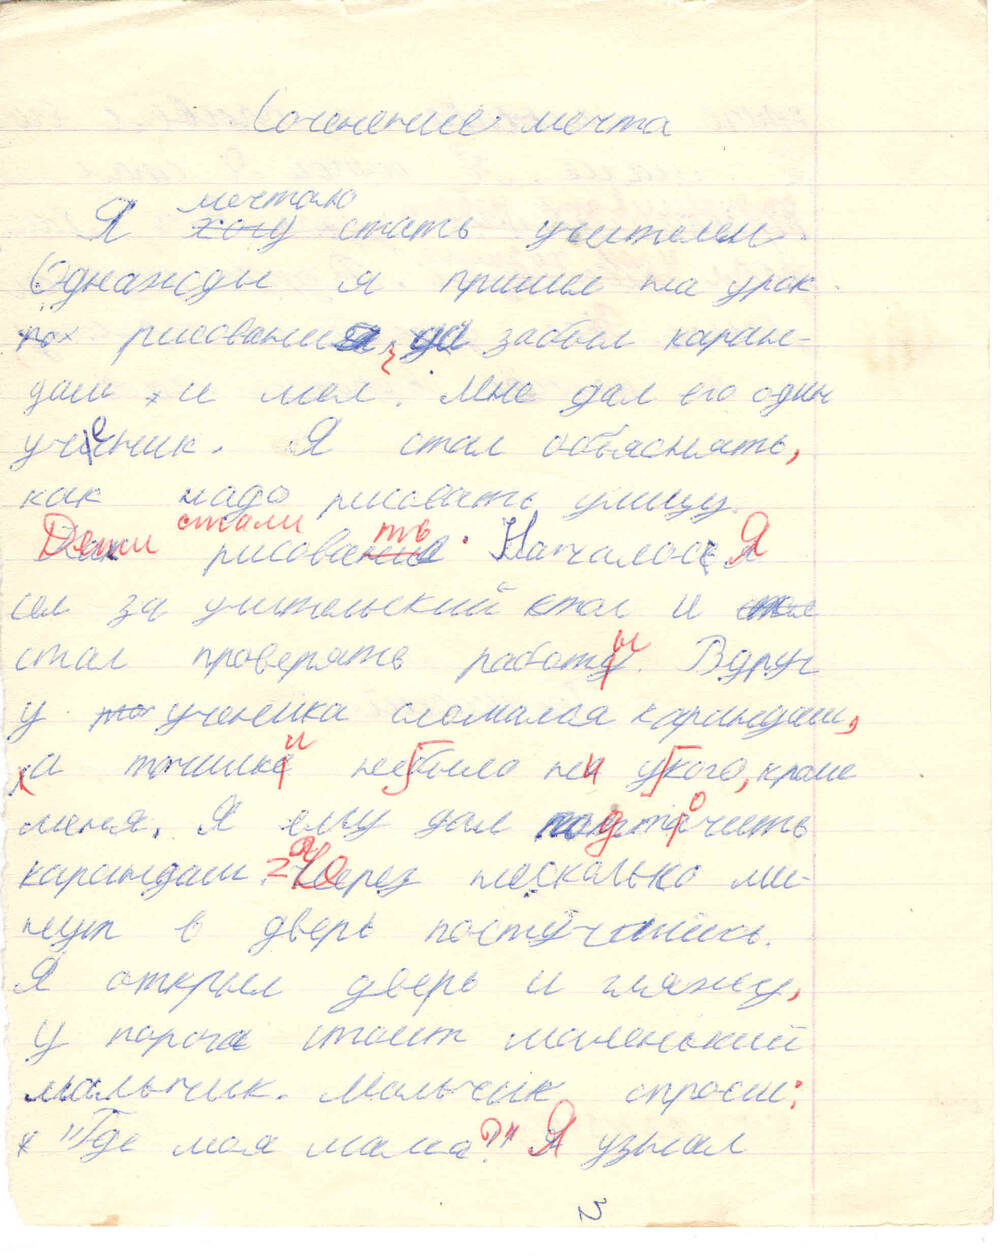 Сочинение мечта
мечтаю
Я хочу стать учителем.
Однажды я пришел на урок
рисования, да забыл каран-
даш и мел. Мне дал его один
ученик. Я стал объяснять,
как надо рисовать улицу.
Дети стали рисовать. Началось Я
сел за учительский стол и стал
стал проверять работы. Вдруг
у ученика сломался карандаш,
а точилки не было ни у кого, кроме
меня. Я ему дал подточить
карандаш. Через несколько ми-
нут в дверь постучались.
Я открыл дверь и гляжу,
у порога стоит маленький
мальчик. Мальчик спросил:
"Где моя мама?" Я узнал
2